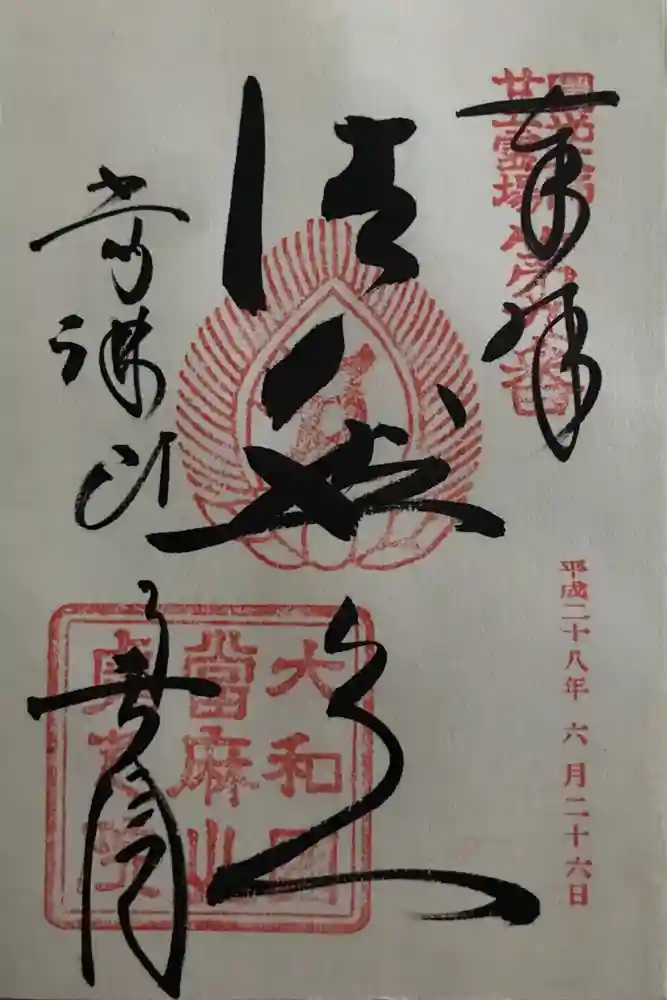 奉拝
圓光大師
廿五霊場
第九番
法然上人
當麻山
奥院
大和國
當麻山
奥之院
平成二十八年 六月二十六日